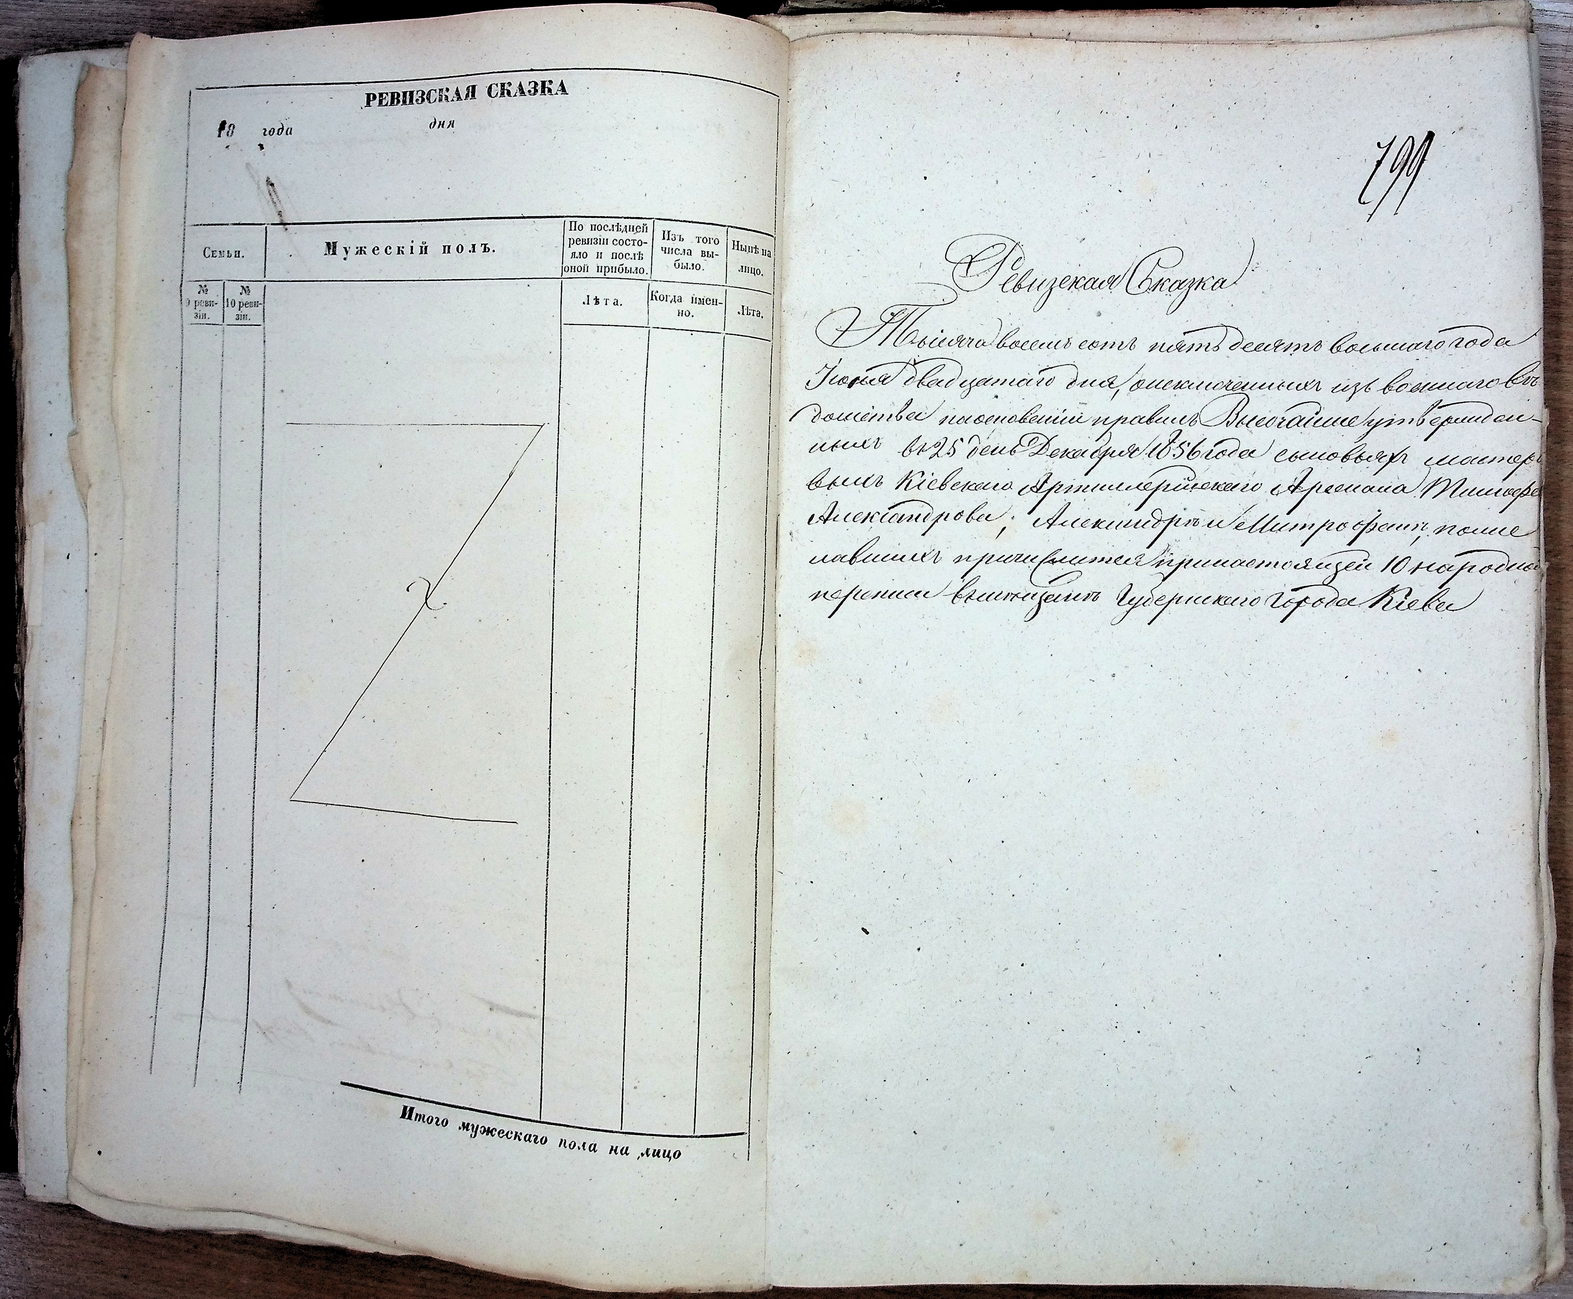 РЕВИЗСКАЯ СКАЗКА
18 года дня
Семьи.
Мужескій полъ.
По послѣдней
ревизіи состо-
яло и послѣ
оной прибыло.
Изъ того
числа вы-
было.
Нынѣ на
лицо.
№
9 реви-
зіи.
№
10 реви-
зіи.
Лѣта.
Когда имен-
но.
Лѣта.
Итого мужескаго пола на лицо
799
Ревизская Сказка
Тысяча восемьсотъ пятьдесятъ восьмаго года
Іюня двадцатаго дня, оисключенныхъ изъ военнаго вѣ
домства наосновеніи правилъ Высочайше утвержден-
ныхъ въ 25 день Декабря 1856 года сыновьяхъ мастеро
выхъ Кіевскаго Артиллерійскаго Арсенала Тимофе
Александрова; Александрѣ и Митрофанѣ, поже
лавшихъ причислится принастоящей 10 народной
переписи вмѣщане Губернскаго города Кіева